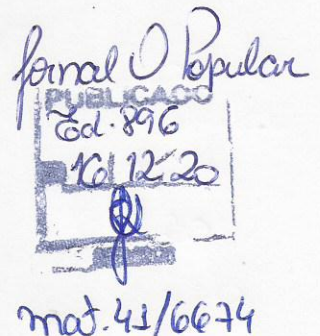 Jornal O Popular
PUBLICADO
Ed. 896
16 12 20
mat. 41/6674